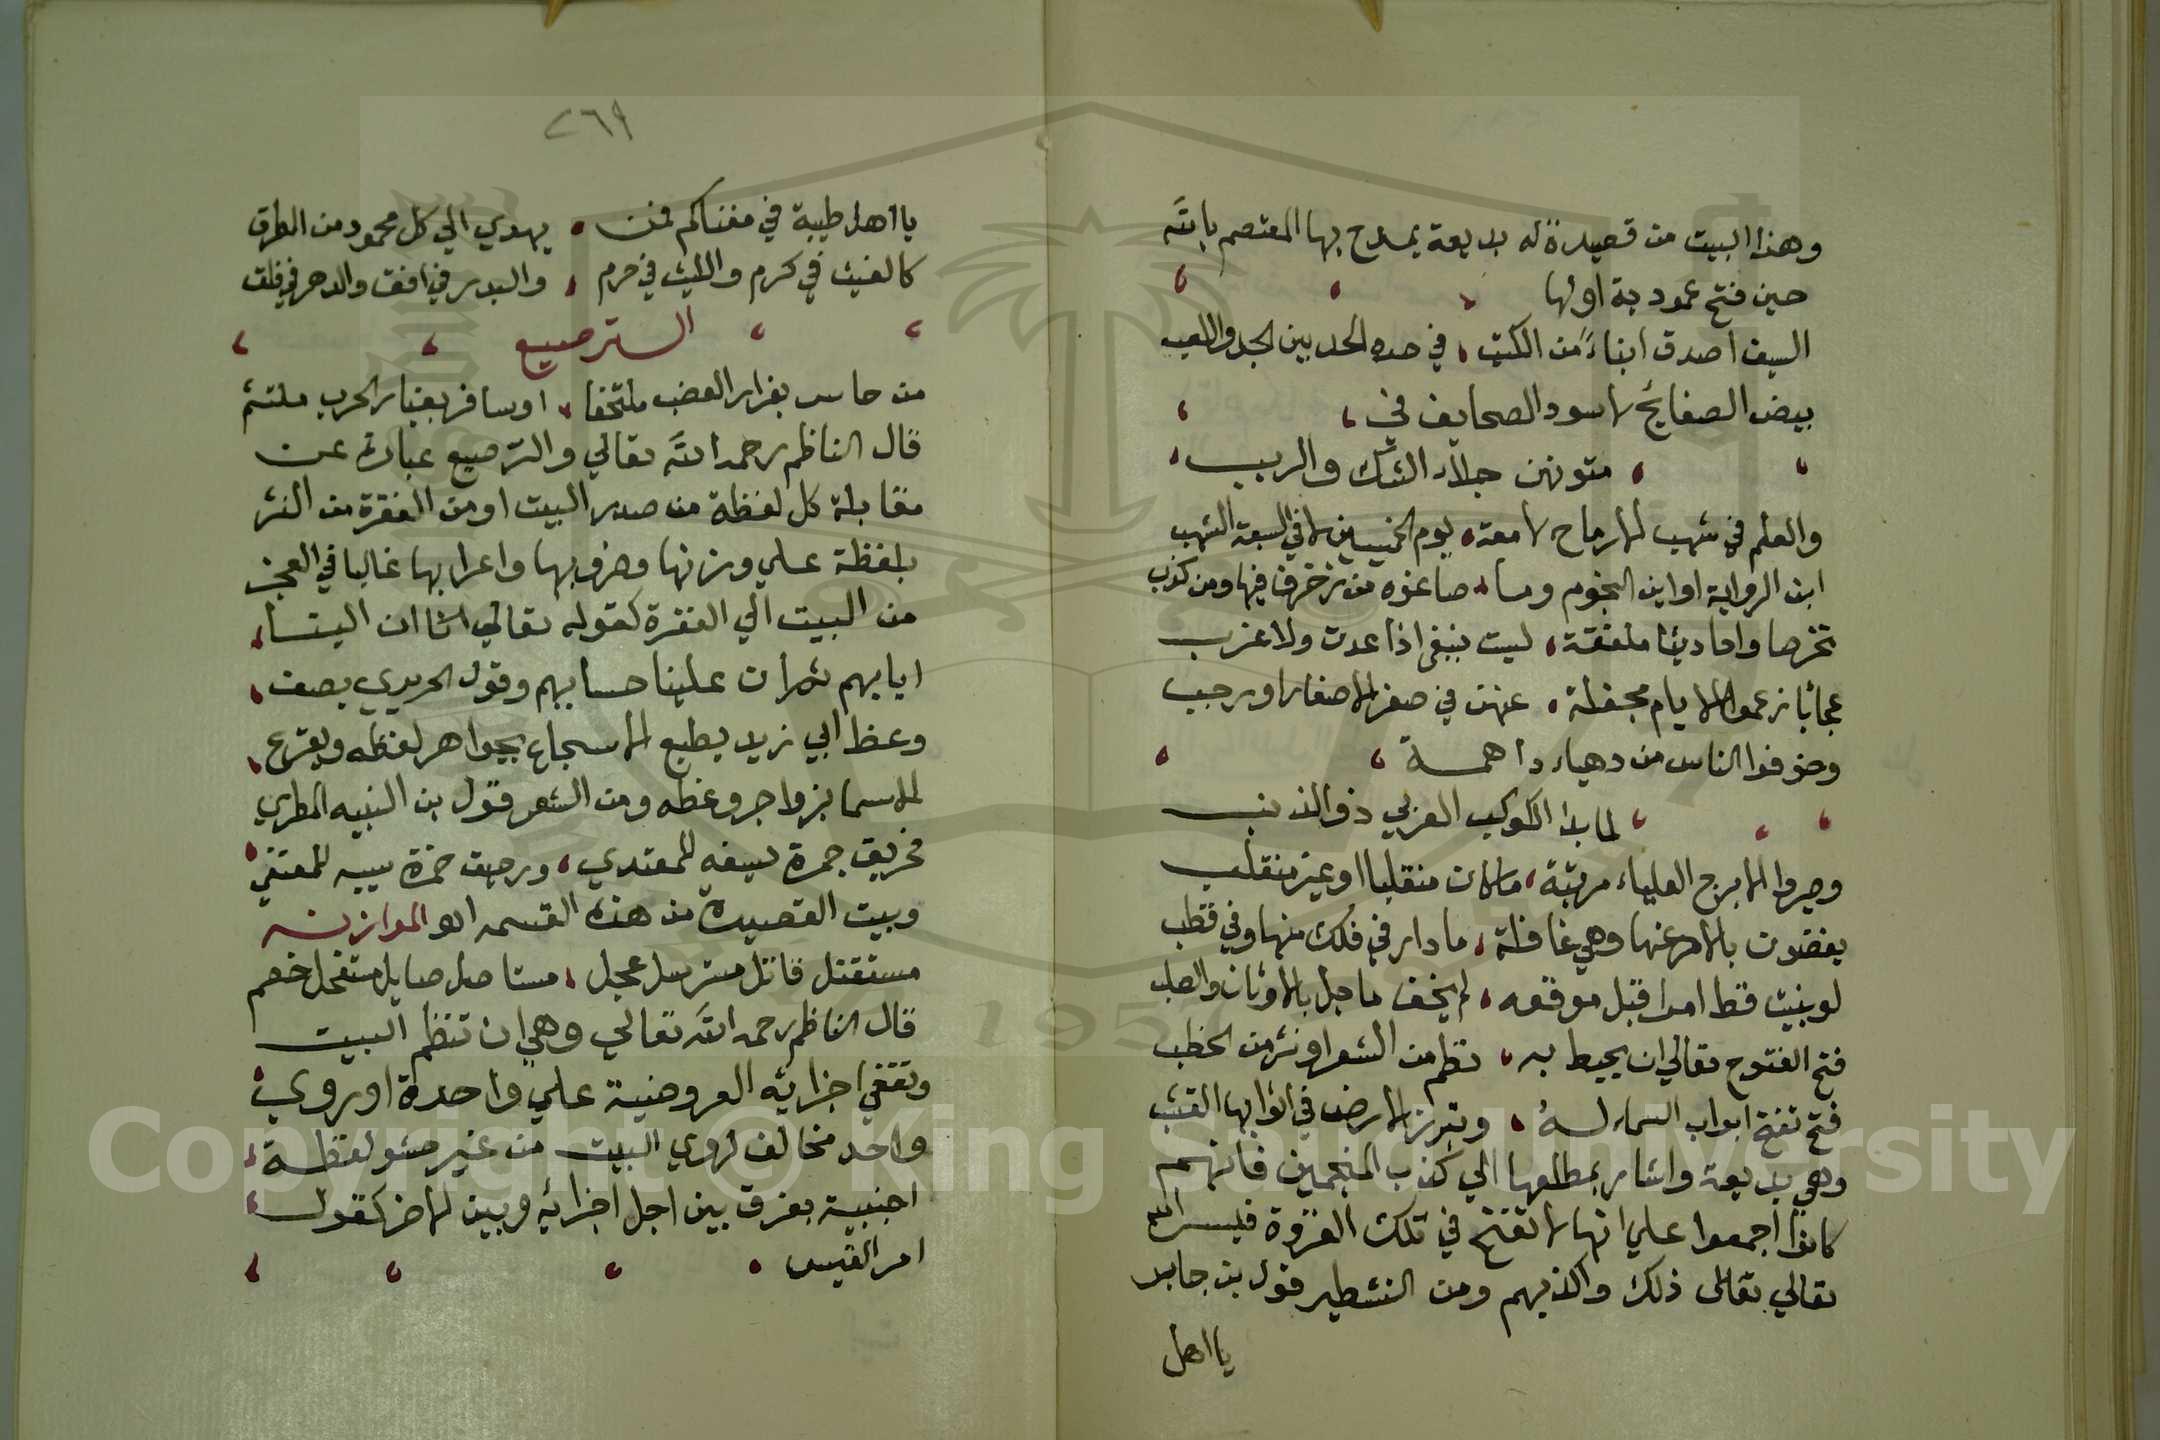 وهذا البيت من قصيدة له بديعة يمدح بها المعتصم بالله
حين فتح عمودية اولها
السيف اصدق ابناءً من الكتب في حده الحد بين الجد واللعب
بيض الصفايح لا سود الصحايف في
متونهن جلاء الشك والريب
والعلم في شهب الارماح لامعة يوم الخميسين لا في السبعة الشهب
اين الرواية او اين النجوم وما صاغوه من زخرف فيها ومن كذب
تخرصا واحاديثا ملفقة ليست بنبع اذا عدت ولا غرب
عجائبا زعموا الايام مجفلة عنهن في صفر الاصفار او رجب
وخوفوا الناس من دهياء داهمة
لما بدا الكوكب الغربي ذو الذنب
وصيروا الابرج العلياء مرتبة ما كان منقلبا او غير منقلب
يقضون بالامر عنها وهي غافلة ما دار في فلك منها وفي قطب
لو بينت قط امرا قبل موقعه لم يخف ما حل بالاوثان والصلب
فتح الفتوح تعالي ان يحيط به نظم من الشعر او نثر من الخطب
فتح تفتح ابواب السماء له وتبرز الارض في اثوابها القشب
وهي بديعة واشار بمطلعها الي كذب المنجمين فانهم
كانوا اجمعوا علي انها لا تفتح في تلك الغزوة فيسر الله
تعالي تعالى ذلك واكذبهم ومن التشطير قول بن جابر
يا اهل
٢٦٩
يا اهل طيبة في مغناكم قمن يهدي الي كل محمود من الطرق
كالغيث في كرم والليث في حرم والبدر في افق والدهر في فلق
الترصيع
من حاسر بغرار العضب ملتحفا او سافر بغبار الحرب ملتثم
قال الناظم رحمه الله تعالي والترصيع عبارة عن
مقابلة كل لفظة من صدر البيت او من الفقرة من النثر
بلفظة علي وزنها وضروبها واعرابها غالبا في العجز
من البيت الي الفقرة كقوله تعالي انا ان الينا
ايابهم ثم ان علينا حسابهم وقول الحريري يصف
وعظ ابي زيد يطبع الاسجاع بجواهر لفظه ويقرع
الاسما بزواجر وعظه ومن الشعر قول بن النبيه المطري
فحريق جمرة سيفه للمعتدي ورحيق خمرة سيبه للمعتفي
وبيت القصيدة من هذه القسمه الموازنه
مستقتل قاتل مسترسل عجل مستاصل صايل مستفحل خصم
قال الناظم رحمه الله تعالي وهي ان تنظم البيت
وتقفي اجزايه العروضية علي واحدة او روي
واحد مخالف لروي البيت من غير حشو لفظة
اجنبية بفرق بين اجل اجزائه وبين الاخر كقول
امر القيس
Copyright © King Saud University
1957